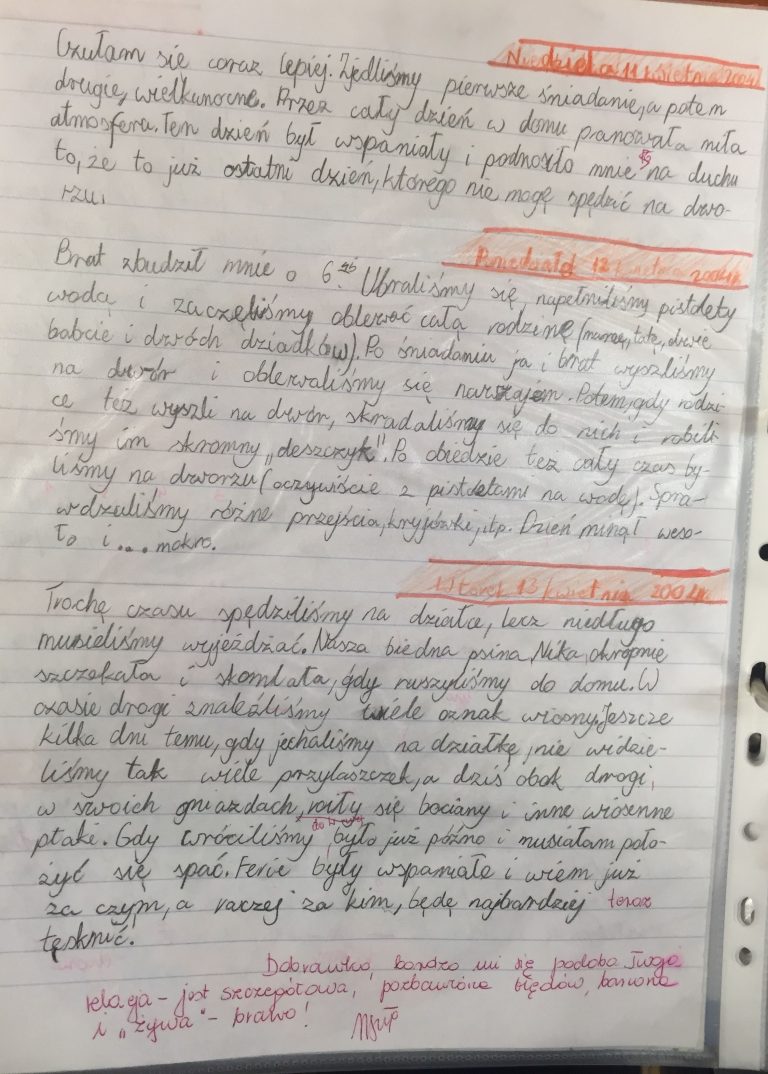 Niedziela 11 kwietnia 2004r.
Czułam się coraz lepiej. Zjedliśmy pierwsze śniadanie, a potem
drugie, wielkanocne. Przez cały dzień w domu panowała miła
atmosfera. Ten dzień był wspaniały i podnosiło mnie na duchu
to, że to już ostatni dzień, którego nie mogę spędzić na dwo-
rzu.
Poniedziałek 12 kwietnia 2004r.
Brat zbudził mnie o 6. Ubraliśmy się, napełniliśmy pistolety
wodą i zaczęliśmy oblewać całą rodzinę (mamę, tatę, dwie
babcie i dwóch dziadków). Po śniadaniu ja i brat wyszliśmy
na dwór i oblewaliśmy się nawzajem. Potem, gdy rodzi-
ce też wyszli na dwór, skradaliśmy się do nich i robili-
śmy im skromny „deszczyk". Po obiedzie też cały czas by-
liśmy na dworzu (oczywiście z pistoletami na wodę). Spra-
wdzaliśmy różne przejścia, kryjówki, itp. Dzień minął weso-
ło i... mokro.
Wtorek 13 kwietnia 2004r.
Trochę czasu spędziliśmy na działce, lecz niedługo
musieliśmy wyjeżdżać. Nasza biedna psina, Nika, okropnie
szczekała i skomlała, gdy ruszyliśmy do domu. W
czasie drogi znaleźliśmy wiele oznak wiosny. Jeszcze
kilka dni temu, gdy jechaliśmy na działkę, nie widzie-
liśmy tak wiele przylaszczek, a dziś obok drogi,
w swoich gniazdach, roiły się bociany i inne wiosenne
ptaki. Gdy wróciliśmy było już późno i musiałam poło-
żyć się spać. Ferie były wspaniałe i wiem już
za czym, a raczej za kim, będę najbardziej teraz
tęsknić.
Dobrawko, bardzo mi się podoba Twoja
relacja - jest szczegółowa, pozbawiona błędów, barwna
i „żywa" - brawo!